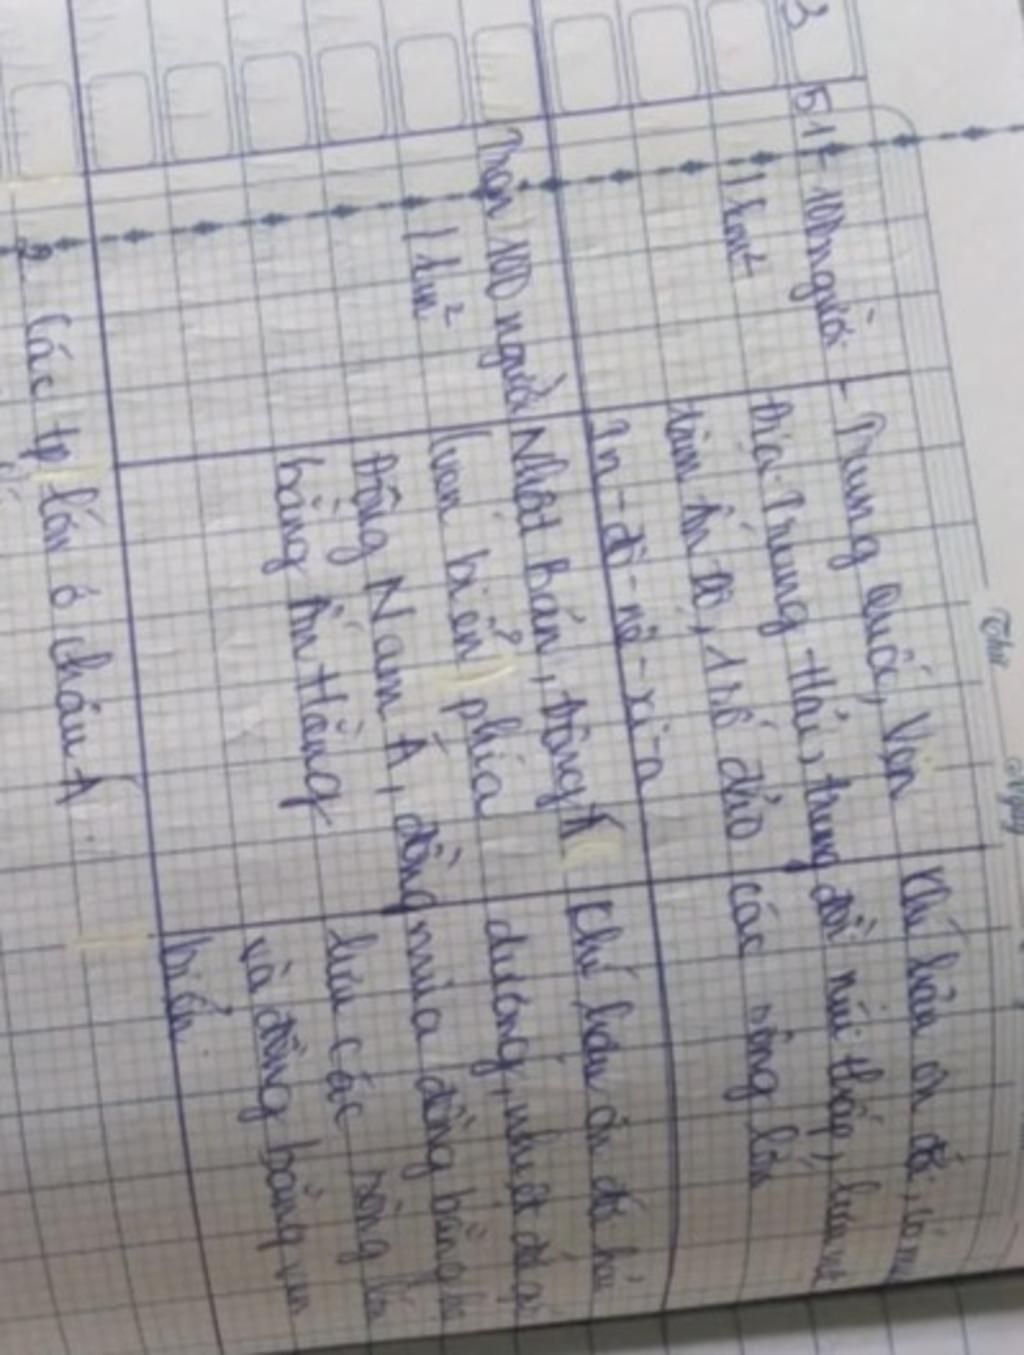 3
51 - 100 người
1 km²
- Trung Quốc, Ven
Địa Trung Hải, trung
tâm Ấn Độ, 1 số đảo
In-đô-nê-xi-a
Khí hậu ôn đới, có
đồi núi thấp, lưu vực
các sông lớn
Trên 100 người
1 km²
Nhật Bản, Đông
ven biển phía
Đông Nam Á, đồng
bằng Ấn Hằng
Khí hậu ôn đới hải
dương, nhiệt đới gió
mùa đồng bằng hạ
lưu các sông lớn
và đồng bằng ven
biển.
2. Các tp lớn ở châu Á.
Thứ
Ngày